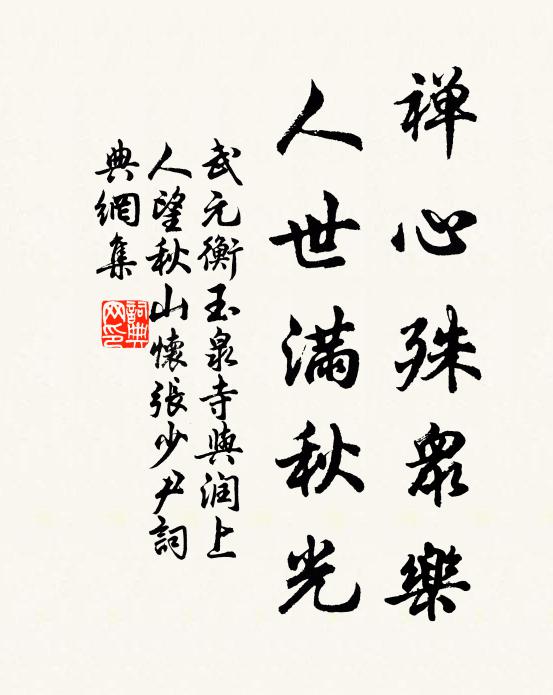 禅心殊眾樂
人世滿秋光
武元衡玉泉寺與润上
人望秋山懷張少尹詞
典網集
詞典
网印